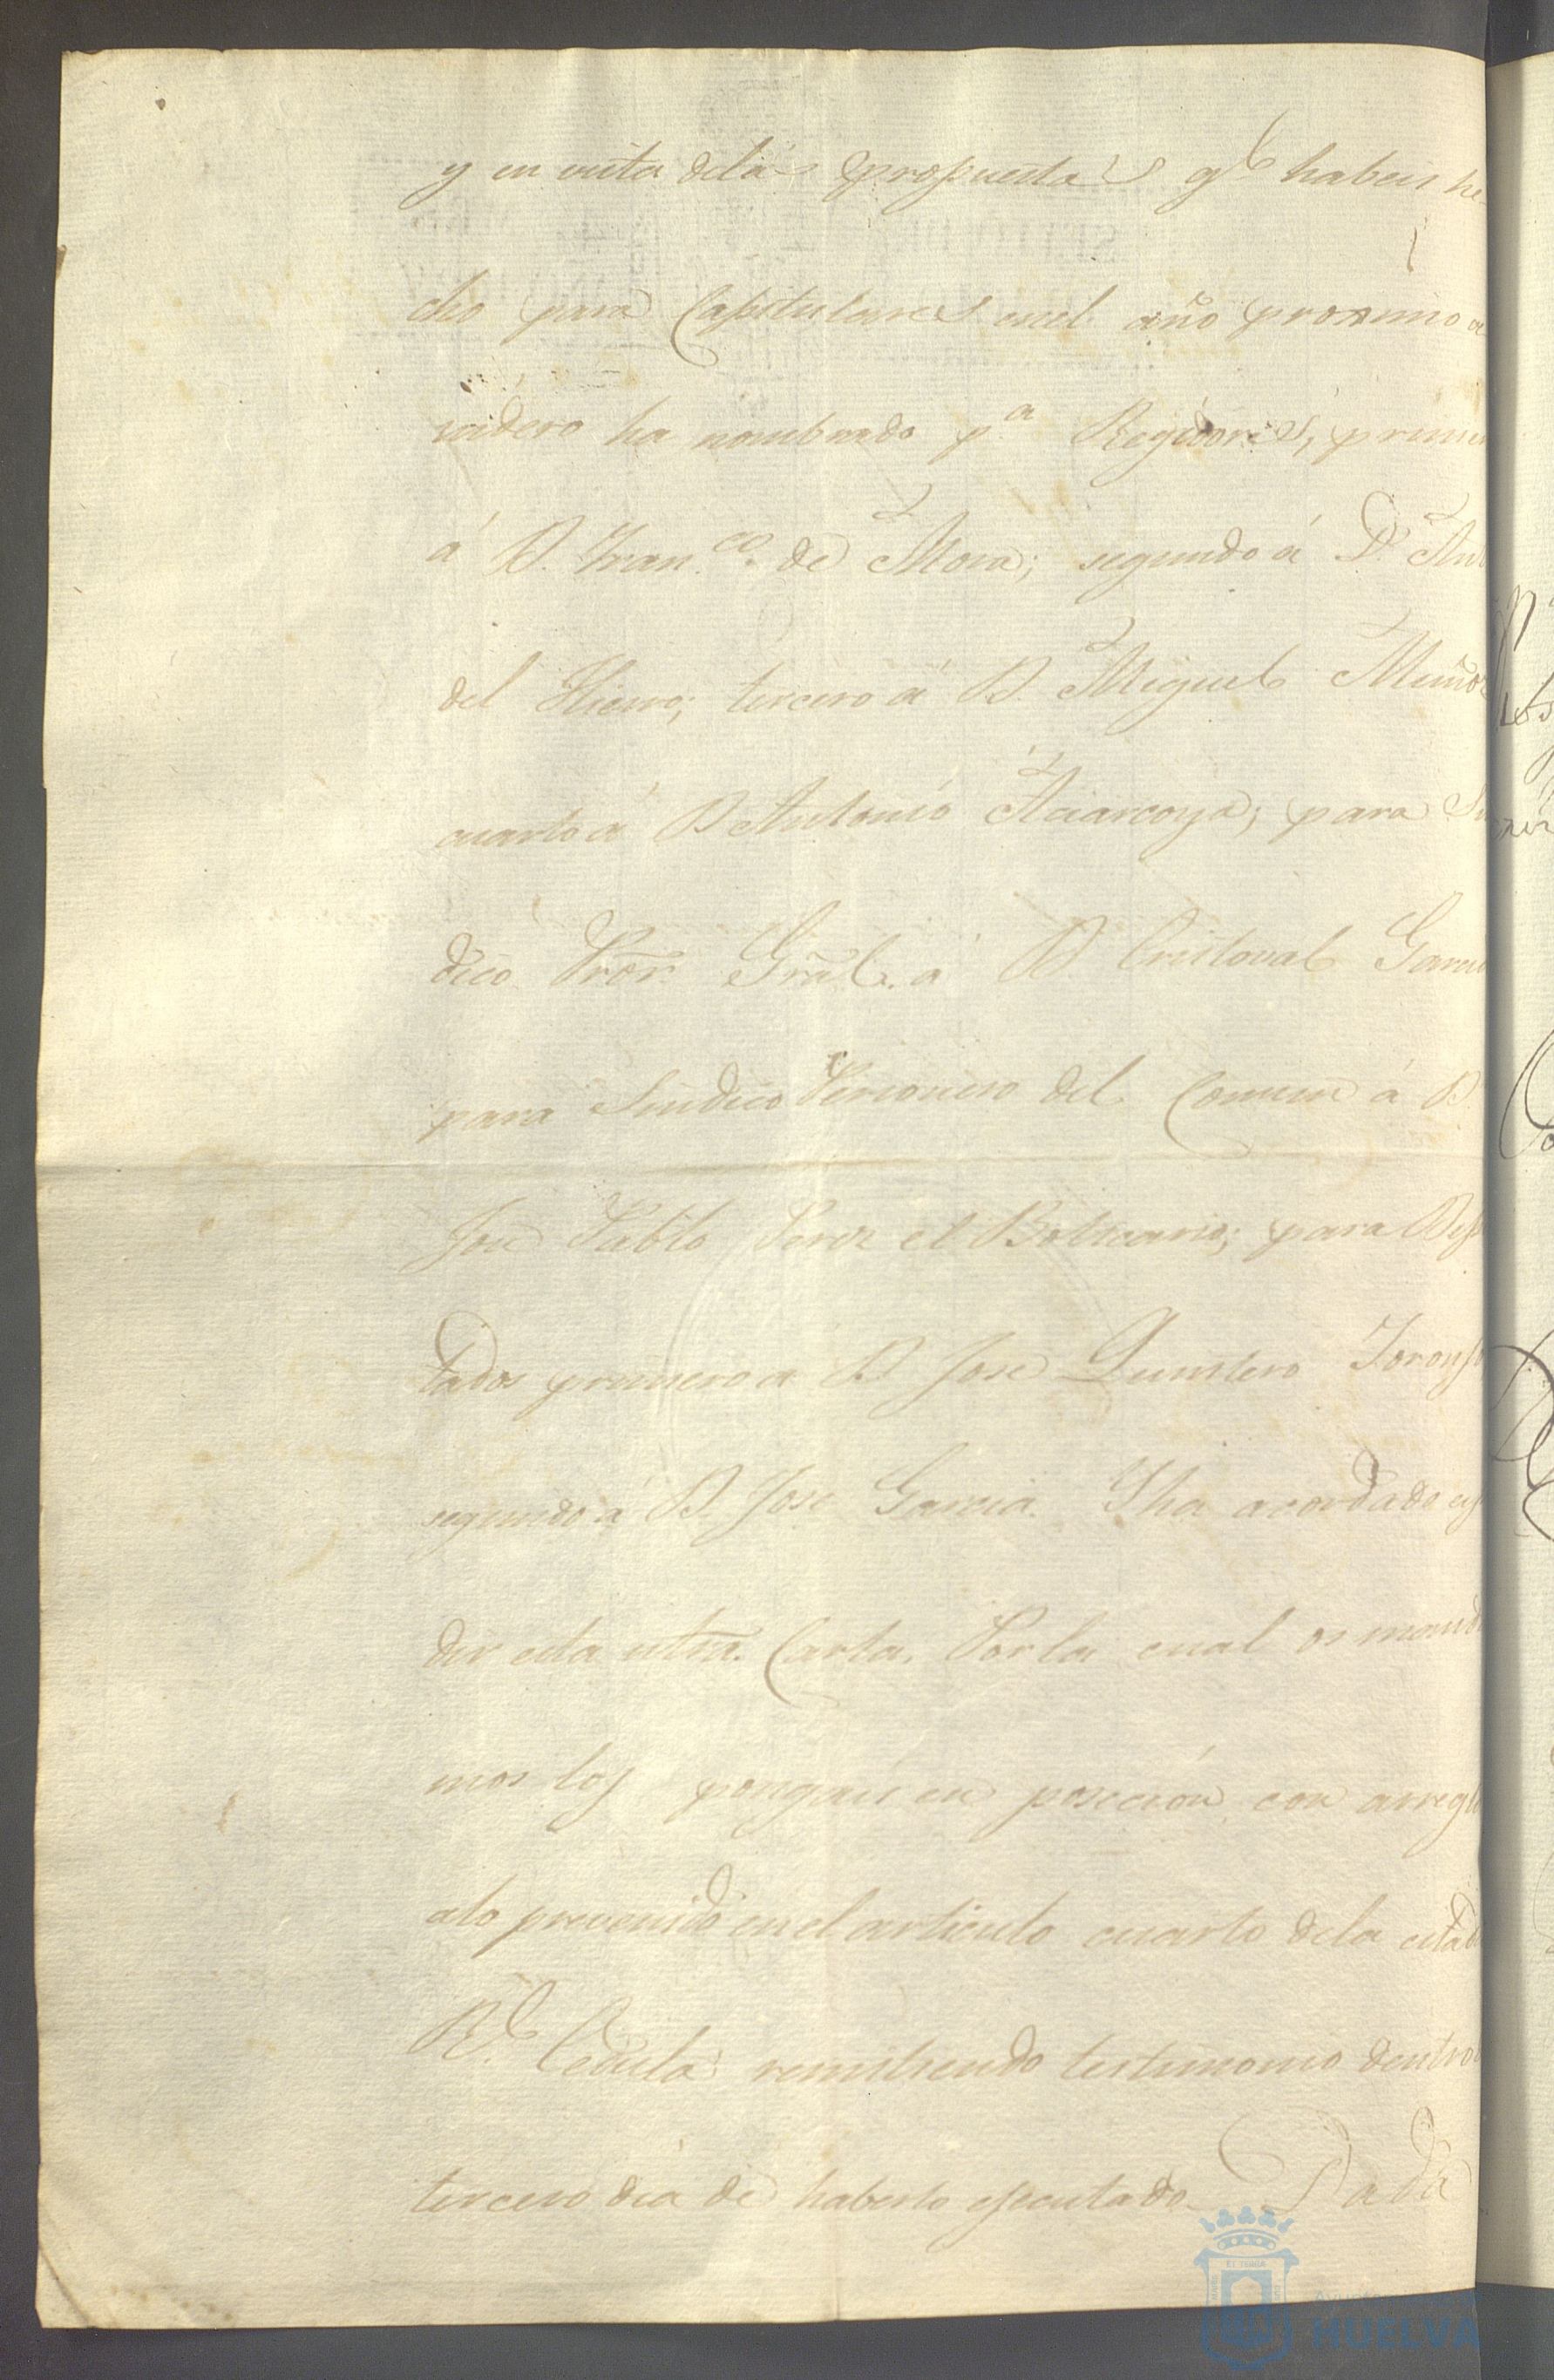 y en vista delas propuestas q.e habeis he
cho para Capitulares en el año proximo a
videro ha nombrado p.a Regidores, prime
á D. Fran.co de Mora; segundo á D. Ant
del Hierro; tercero á D. Miguel Muñoz
cuarto á D Antonio para Sin
dico Pror. Gral. á D. Cristoval Garcia
para Sindico Personero del Comun á D.
José Pablo Perez el Boticario; para Dip
tados primero á D José Quintero
segundo á D. José Garcia. Y ha acordado esp
dir esta ntra. Carta. Por la cual os manda
mos los pongais en posecion con arreglo
alo prevenido en el articulo cuarto dela citad
R.l Cedula remitiendo testimonio dentro
tercero dia de haberlo ejecutado Dada
HUELVA